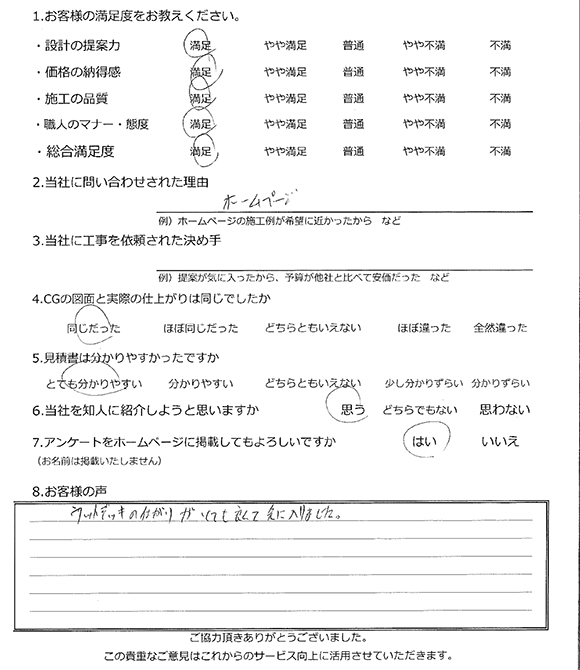 1.お客様の満足度をお教えください。
・設計の提案力 満足 やや満足 普通 やや不満 不満
・価格の納得感 満足 やや満足 普通 やや不満 不満
・施工の品質 満足 やや満足 普通 やや不満 不満
・職人のマナー・態度 満足 やや満足 普通 やや不満 不満
・総合満足度 満足 やや満足 普通 やや不満 不満
2.当社に問い合わせされた理由
ホームページ
例）ホームページの施工例が希望に近かったから など
3.当社に工事を依頼された決め手
例）提案が気に入ったから、予算が他社と比べて安価だった など
4.CGの図面と実際の仕上がりは同じでしたか
同じだった ほぼ同じだった どちらともいえない ほぼ違った 全然違った
5.見積書は分かりやすかったですか
とても分かりやすい 分かりやすい どちらともいえない 少し分かりずらい 分かりずらい
6.当社を知人に紹介しようと思いますか 思う どちらでもない 思わない
7.アンケートをホームページに掲載してもよろしいですか はい いいえ
（お名前は掲載いたしません）
8.お客様の声
ウッドデッキの仕上がりがとても良くて気に入りました。
ご協力頂きありがとうございました。
この貴重なご意見はこれからのサービス向上に活用させていただきます。